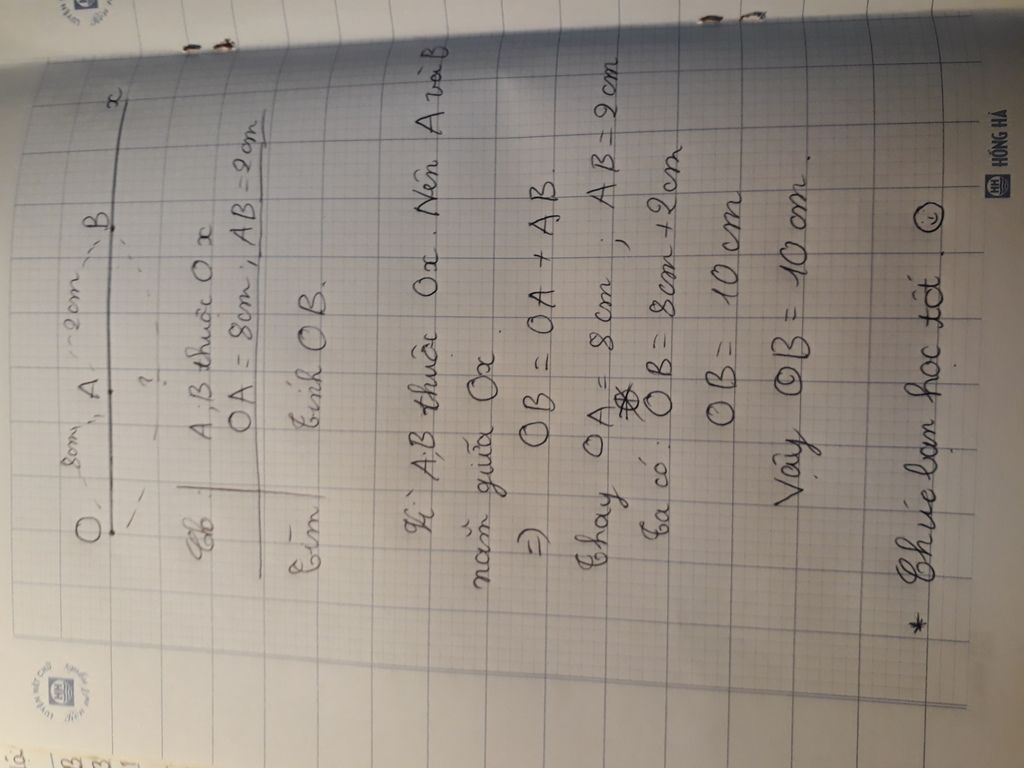 O 8cm A 2cm B x
?
Cho A;B thuộc Ox
OA = 8cm; AB = 2cm
Tìm Tính OB.
Vì A;B thuộc Ox. Nên A và B
nằm giữa Ox
=) OB = OA + AB
Thay OA = 8cm; AB = 2cm
Ta có: OB = 8cm + 2cm
OB = 10cm
Vậy OB = 10cm.
* Chúc bạn học tốt
HH HỒNG HÀ